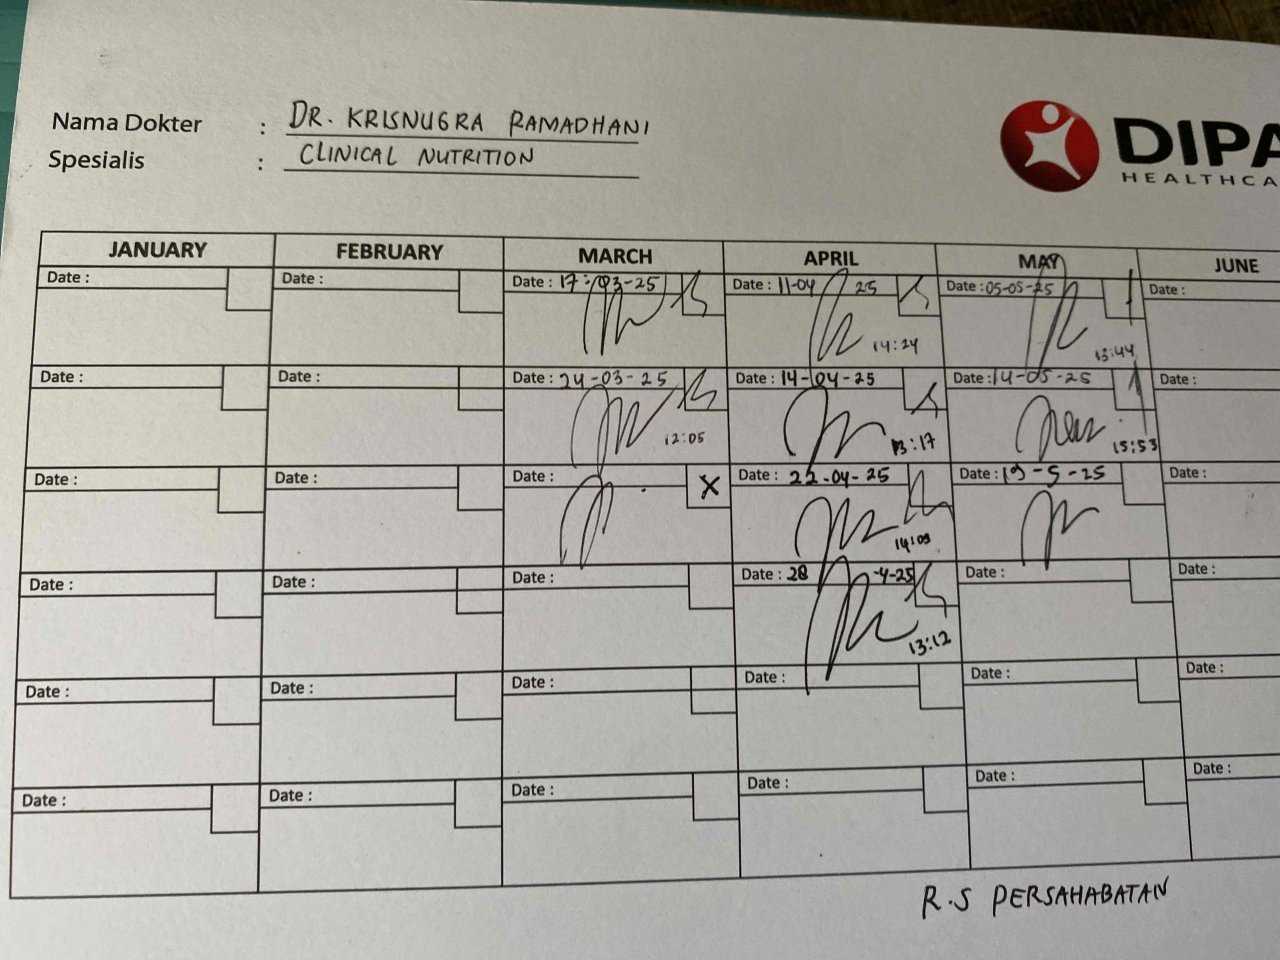 Nama Dokter : DR. KRISNUGRA RAMADHANI
Spesialis : CLINICAL NUTRITION
DIPA
HEALTHCA
JANUARY FEBRUARY MARCH APRIL MAY JUNE
Date : Date : Date : 17-03-25 Date : 11-04 25 Date : 05-05-25 Date :
14:24 13:44
Date : Date : Date : 24-03-25 Date : 14-04-25 Date : 14-05-25 Date :
12:05 13:17 15:53
Date : Date : Date : X Date : 22-04-25 Date : 19-5-25 Date :
14:09
Date : Date : Date : Date : 28 -4-25 Date : Date :
13:12
Date : Date : Date : Date : Date : Date :
Date : Date : Date : Date : Date : Date :
R.S PERSAHABATAN